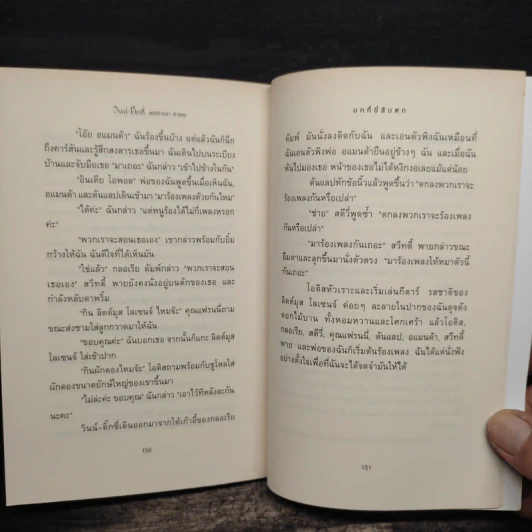 วินน์-ดิ๊กซี่
"โอ๊ย อแมนด้า" ฉันร้องขึ้นบ้าง แต่แล้วฉันก็นึก
ถึงคาร์สันและรู้สึกสงสารเธอขึ้นมา ฉันเดินไปบนระเบียง
บ้านและจับมือเธอ "มาเถอะ" ฉันกล่าว "เข้าไปข้างในกัน"
"อินเดีย โอพอล" พ่อของฉันพูดขึ้นเมื่อเห็นฉัน,
อแมนด้า และดันแลปเดินเข้ามา "มาร้องเพลงด้วยกันไหม"
"ได้ค่ะ" ฉันกล่าว "แต่หนูร้องได้ไม่กี่เพลงหรอก
ค่ะ"
"พวกเราจะสอนเธอเอง" เขากล่าวพร้อมกับยิ้ม
กว้างให้ฉัน ฉันดีใจที่ได้เห็นมัน
"ใช่แล้ว" กลอเรีย ดัมพ์กล่าว "พวกเราจะสอน
เธอเอง" สวีทตี้ พายยังคงนั่งอยู่บนตักของเธอ และ
กำลังหลับตาพริ้ม
"กิน ลิตต์มุส โลเซนจ์ ไหมจ๊ะ" คุณแฟรนนี่ถาม
ขณะส่งชามใส่ลูกกวาดมาให้ฉัน
"ขอบคุณค่ะ" ฉันบอกเธอ จากนั้นก็แกะ ลิตต์มุส
โลเซนจ์ ใส่เข้าปาก
"กินผักดองไหมจ๊ะ" โอติสถามพร้อมกับชูโหลใส่
ผักดองขนาดยักษ์ใหญ่ของเขาขึ้นมา
"ไม่ล่ะค่ะ ขอบคุณ" ฉันกล่าว "เอาไว้ทีหลังละกัน
นะคะ"
วินน์-ดิ๊กซี่เดินออกมาจากใต้เก้าอี้ของกลอเรีย
150
บทที่ยี่สิบหก
ดัมพ์ มันนั่งลงติดกับฉัน และเอนตัวพิงฉันเหมือนที่
ฉันเอนตัวพิงพ่อ อแมนด้ายืนอยู่ข้างๆ ฉัน และเมื่อฉัน
หันไปมองเธอ หน้าของเธอไม่ได้หงิกงอเลยแม้แต่น้อย
ดันแลปหักข้อนิ้วแล้วพูดขึ้นว่า "ตกลงพวกเราจะ
ร้องเพลงกันหรือเปล่า"
"ใช่" สตีวี่พูดซ้ำ "ตกลงพวกเราจะร้องเพลง
กันหรือเปล่า"
"มาร้องเพลงกันเถอะ" สวีทตี้ พายกล่าวขณะ
ลืมตาและลุกขึ้นมานั่งตัวตรง "มาร้องเพลงให้หมาตัวนี้
กันเถอะ"
โอติสหัวเราะและเริ่มเล่นกีตาร์ รสชาติของ
ลิตต์มุส โลเซนจ์ ค่อยๆ ละลายในปากของฉันดุจดัง
ดอกไม้บาน ทั้งหอมหวานและโศกเศร้า แล้วโอติส,
กลอเรีย, สตีวี่, คุณแฟรนนี่, ดันแลป, อแมนด้า, สวีทตี้
พาย และพ่อของฉันก็เริ่มต้นร้องเพลง ฉันได้แต่นั่งฟัง
อย่างตั้งใจเพื่อที่ฉันจะได้จดจำมันให้ได้
151